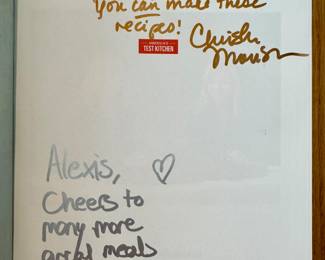 You can make these
recipes!
Christie Morrison
AMERICA'S
TEST KITCHEN
Alexis,
Cheers to
many more
meals